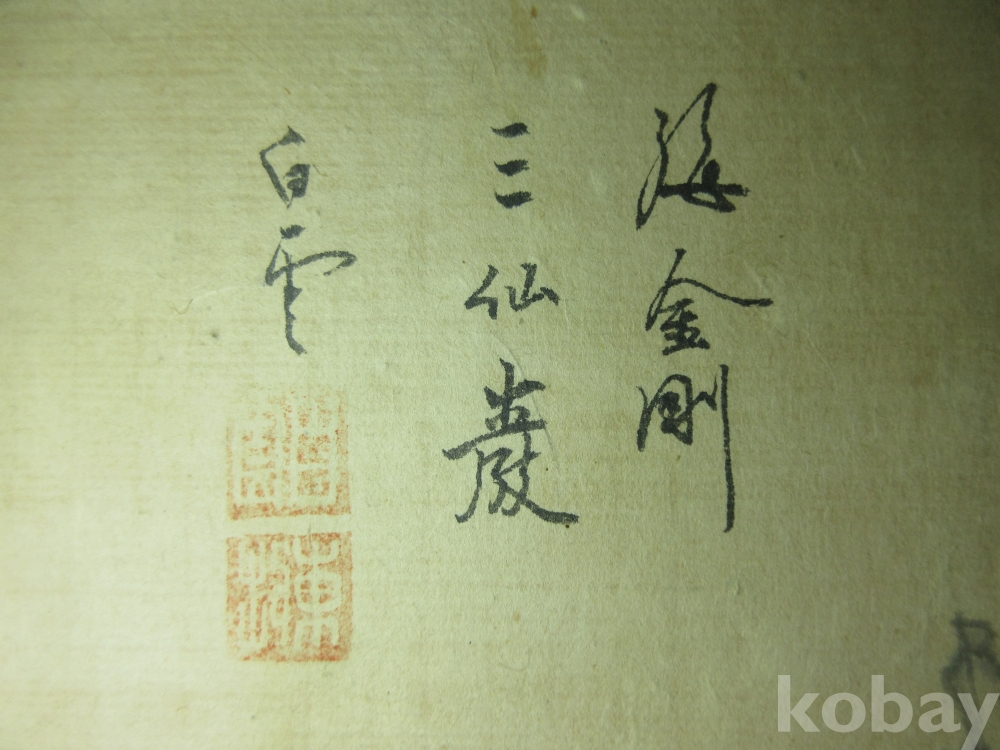 海金剛
三仙巖
白雲
kobay